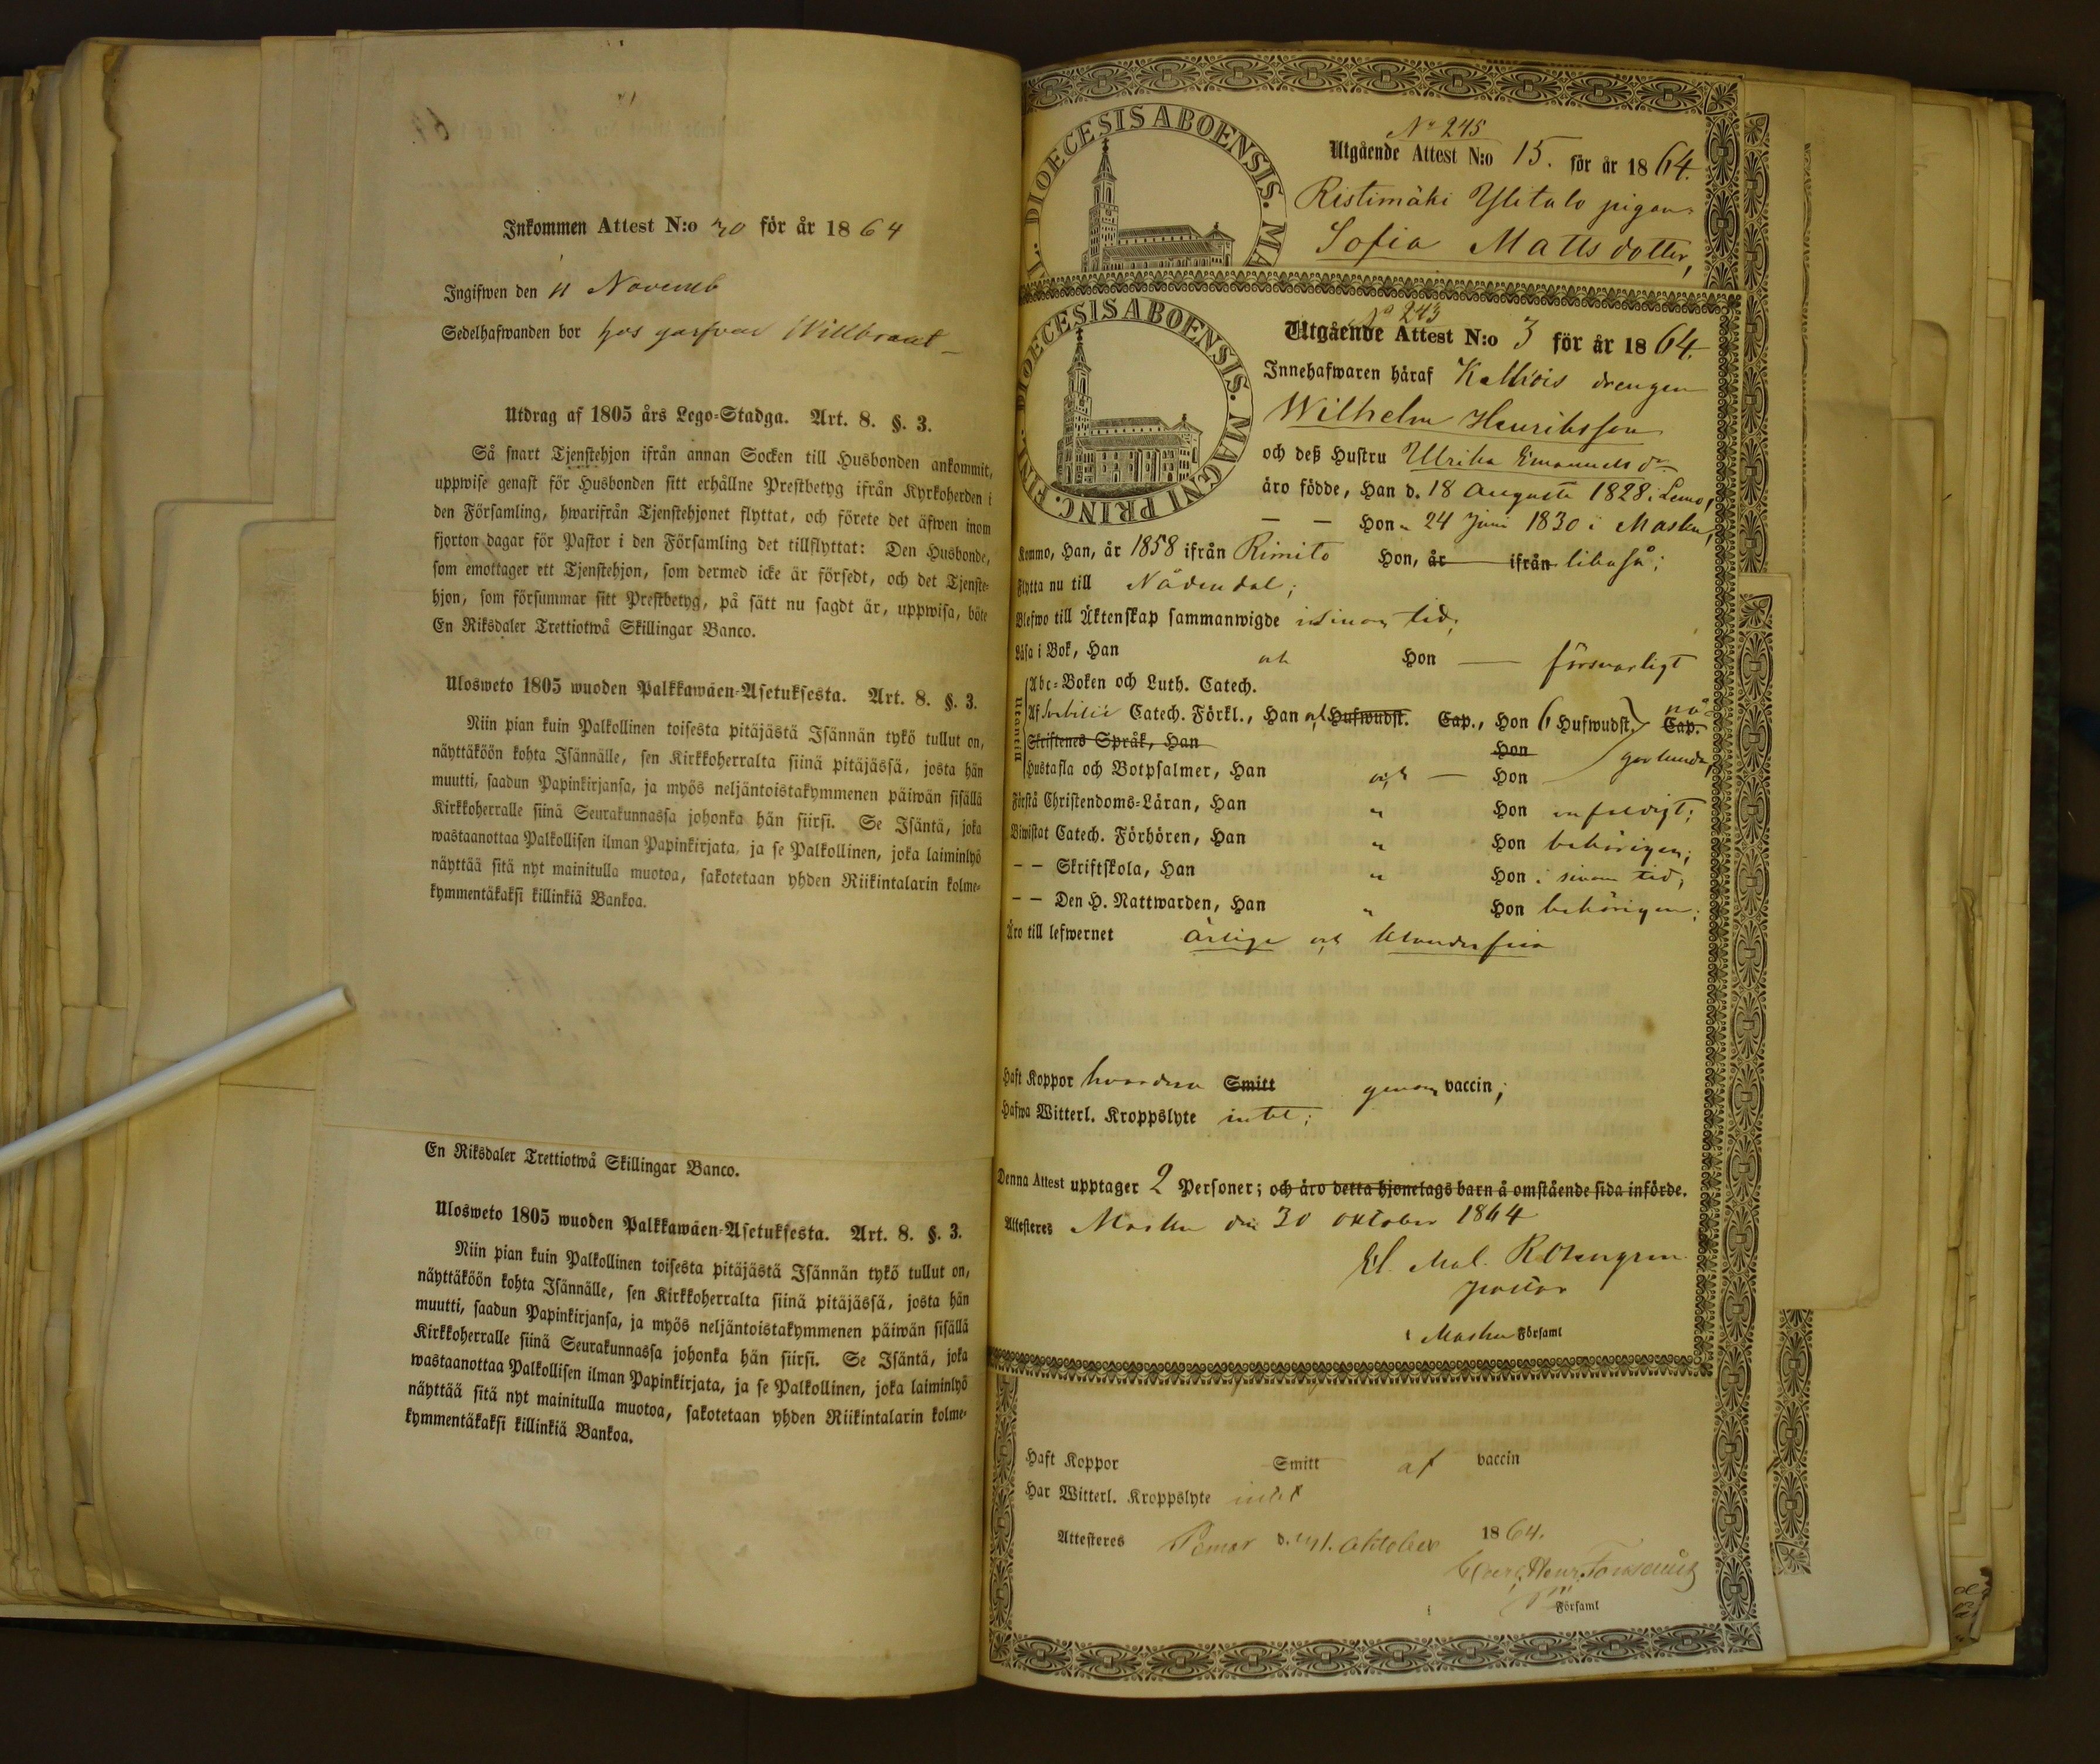 Inkommen Attest N:o 30 för år 1864
Ingifwen den 11 Novemb
Sedelhafwanden bor hos garfvar Willbrant
Utdrag af 1805 års Lego-Stadga. Art. 8. §. 3.
Så snart Tjenstehjon ifrån annan Socken till Husbonden ankommit,
uppwise genast för Husbonden sitt erhållne Prestbetyg ifrån Kyrkoherden i
den Församling, hwarifrån Tjenstehjonet flyttat, och förete det äfwen inom
fjorton dagar för Pastor i den Församling det tillflyttat: Den Husbonde,
som emottager ett Tjenstehjon, som dermed icke är försedt, och det Tjenste-
hjon, som försummar sitt Prestbetyg, på sätt nu sagdt är, uppwisa, böte
En Riksdaler Trettiotwå Skillingar Banco.
Ulosweto 1805 wuoden Palkkawäen-Asetuksesta. Art. 8. §. 3.
Niin pian kuin Palkollinen toisesta pitäjästä Isännän tykö tullut on,
näyttäköön kohta Isännälle, sen Kirkkoherralta siinä pitäjässä, josta hän
muutti, saadun Papinkirjansa, ja myös neljäntoistakymmenen päiwän sisällä
Kirkkoherralle siinä Seurakunnassa johonka hän siirsi. Se Isäntä, joka
wastaanottaa Palkollisen ilman Papinkirjata, ja se Palkollinen, joka laiminlyö
näyttää sitä nyt mainitulla muotoa, sakotetaan yhden Riikintalarin kolme-
kymmentäkaksi killinkiä Bankoa.
En Riksdaler Trettiotwå Skillingar Banco.
Ulosweto 1805 wuoden Palkkawäen-Asetuksesta. Art. 8. §. 3.
Niin pian kuin Palkollinen toisesta pitäjästä Isännän tykö tullut on,
näyttäköön kohta Isännälle, sen Kirkkoherralta siinä pitäjässä, josta hän
muutti, saadun Papinkirjansa, ja myös neljäntoistakymmenen päiwän sisällä
Kirkkoherralle siinä Seurakunnassa johonka hän siirsi. Se Isäntä, joka
wastaanottaa Palkollisen ilman Papinkirjata, ja se Palkollinen, joka laiminlyö
näyttää sitä nyt mainitulla muotoa, sakotetaan yhden Riikintalarin kolme-
kymmentäkaksi killinkiä Bankoa.
DIOECESIS ABOENSIS. MA
No 245
Utgående Attest N:o 15. för år 1864.
Ristimäki Ylitalo pigan
Sofia Mattsdotter,
DIOECESIS ABOENSIS. MAGNI PRINC. FINL.
No 243
Utgående Attest N:o 3 för år 1864.
Innehafwaren häraf Kallois drengen
Wilhelm Henriksson
och deß Hustru Ulrika Emanuels dr
äro födde, Han d. 18 Augusti 1828 i Lemo,
— — Hon " 24 Juni 1830 i Masku,
Kommo, Han, år 1858 ifrån Rimito Hon, år ifrån likaså;
Flytta nu till Nådendal;
Blefwo till Äktenskap sammanwigde i sinom tid;
Läsa i Bok, Han och Hon — försvarligt
Utantill
Abc-Boken och Luth. Catech.
Af Svebilii Catech. Förkl., Han och Hufwudst. Cap., Hon 6 Hufwudst. Cap. nå-
Skriftenes Språk, Han Hon gorlunda,
Hustafla och Botpsalmer, Han och — Hon
Förstå Christendoms-Läran, Han " Hon enfaldigt;
Biwistat Catech. Förhören, Han " Hon behörigen;
— — Skriftskola, Han " Hon i sinom tid;
— — Den H. Nattwarden, Han " Hon behörigen;
Äro till lefwernet ärlige och klanderfria
Haft Koppor hvardera Smitt genom vaccin;
Hafwa Witterl. Kroppslyte intet;
Denna Attest upptager 2 Personer; och äro detta hjonelags barn å omstående sida införde.
Attesteres Masku den 30 Oktober 1864
pastor
i Masku Församl
Haft Koppor Smitt af vaccin
Har Witterl. Kroppslyte intet
Attesteres Pemar d. 31. Oktober 1864.
i Församl